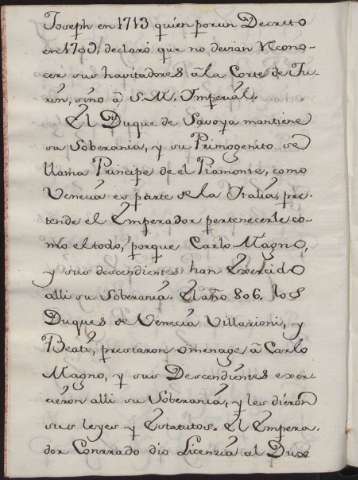 Joseph en 1713 quien por un Decreto
en 1709, declaró que no devian Recono-
cer sus havitadores â la Corte de Tu-
rin, sino â S. M. Imperial.
El Duque de Savoya mantiene
su Soberania, y su Primogenito se
llama Principe de el Piamonte, como
Venecia es parte de la Italia, pre-
tende el Emperador pertenecerle co-
mo el todo, porque Carlo Magno,
y sus descendientes han Exercido
alli su Soberania. El año 806. los
Duques de Venecia Villarioni, y
Beati, prestaron omenage â Carlo
Magno, y sus Descendientes exer-
cieron alli su Soberania, y les dieron
sus leyes y Estatutos. El Empera-
dor Conrrado dio Licencia al Dux